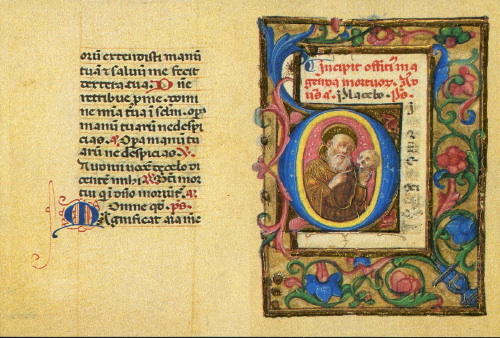 orũ extendisti manũ
tuã & saluũ me fecit
dextera tua. Dñe
retribue p me. domi
ne mia tua ĩ sclm. opa
manũ tuarũ ne despi
cias. a. Opa manũ tu
arũ ne despicias. V.
Audiui uocẽ de celo di
centẽ mihi. R. Beati mor
tui qi ĩ dño moriũt. a.
Omne qđ. ps.
Magnificat aĩa me
Incipit offitiũ in a
genda mortuor. Ad
ũs a. Placebo. Ps.